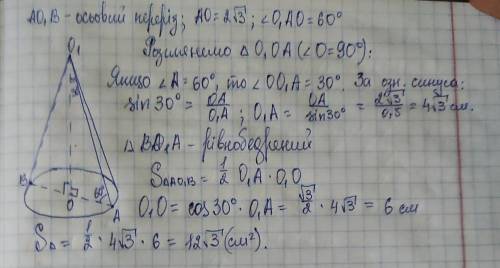 AO₁B - осьовий переріз; AO = 2√3; ∠O₁AO = 60°
Розглянемо △ O₁OA (∠O = 90°):
Якщо ∠A = 60°, то ∠OO₁A = 30°. За озн. синуса:
sin 30° = OA/O₁A ; O₁A = OA/sin30° = 2√3/0,5 = 4√3 см.
△ BO₁A - рівнобедрений
S△AO₁B = 1/2 O₁A · O₁O
O₁O = cos 30° · O₁A = √3/2 · 4√3 = 6 см
S△ = 1/2 · 4√3 · 6 = 12√3 (см²).
O₁
B
O
A